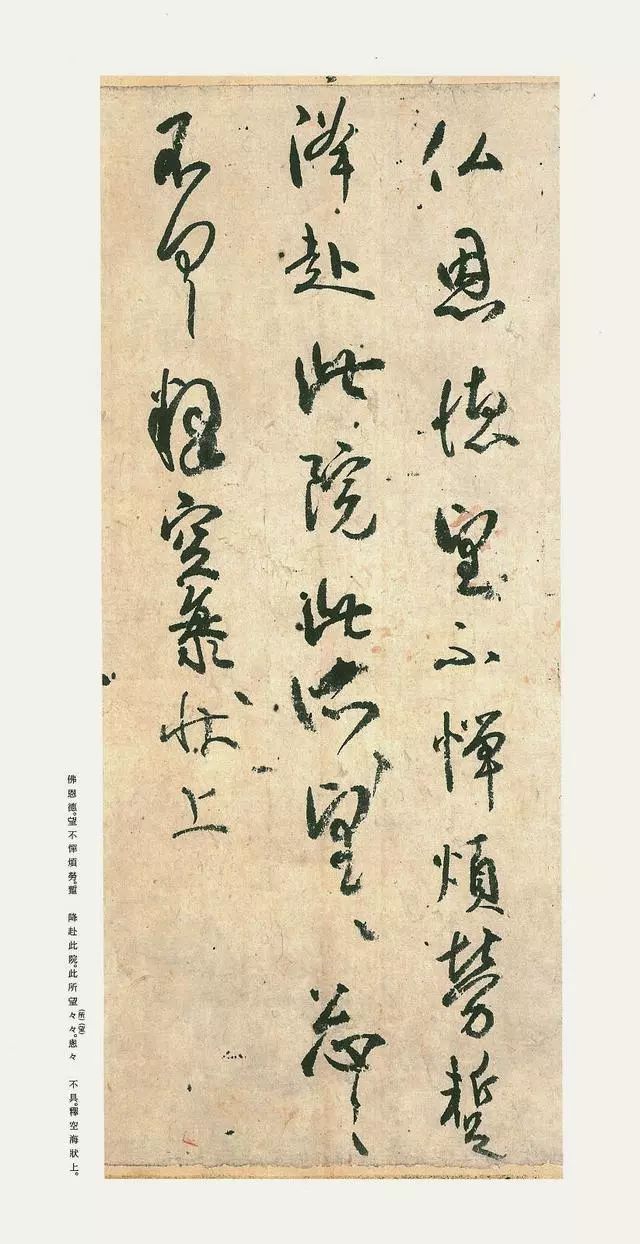 仏恩徳望不憚煩勞蹔
降赴此院此所望〻〻忩〻
不具釋空海状上
佛恩德。望不憚煩勞。蹔　降赴此院。此所望々々。(所)(望)怱々　不具。釋空海狀上。